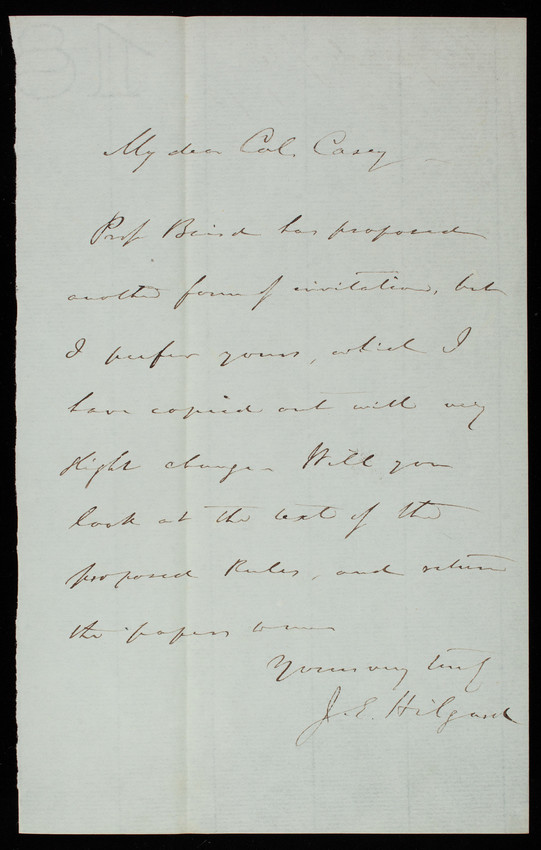 My dear Col. Casey
Prof Baird has proposed
another form of invitation, but
I prefer yours, which I
have copied out with very
slight change. Will you
look at the text of the
proposed Rules, and return
the papers
Yours very truly
J. E. Hilgard